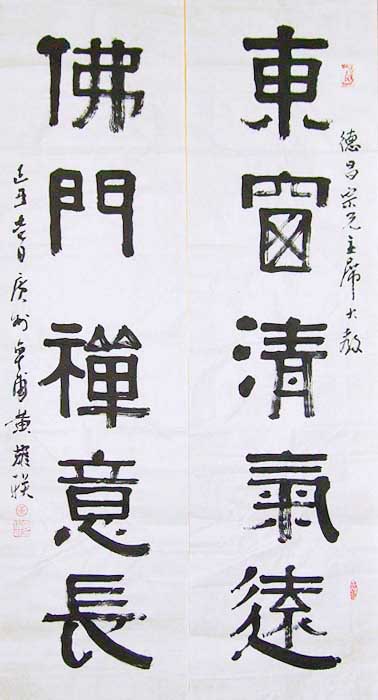 德昌宗兄主席大教
東窗清氣遠
佛門禪意長
己丑春日廣州黄耀